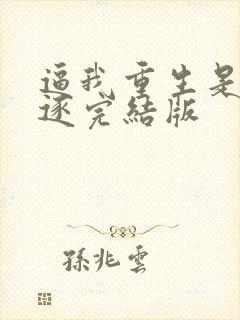 逼我重生是
逐完結版
孫兆雲